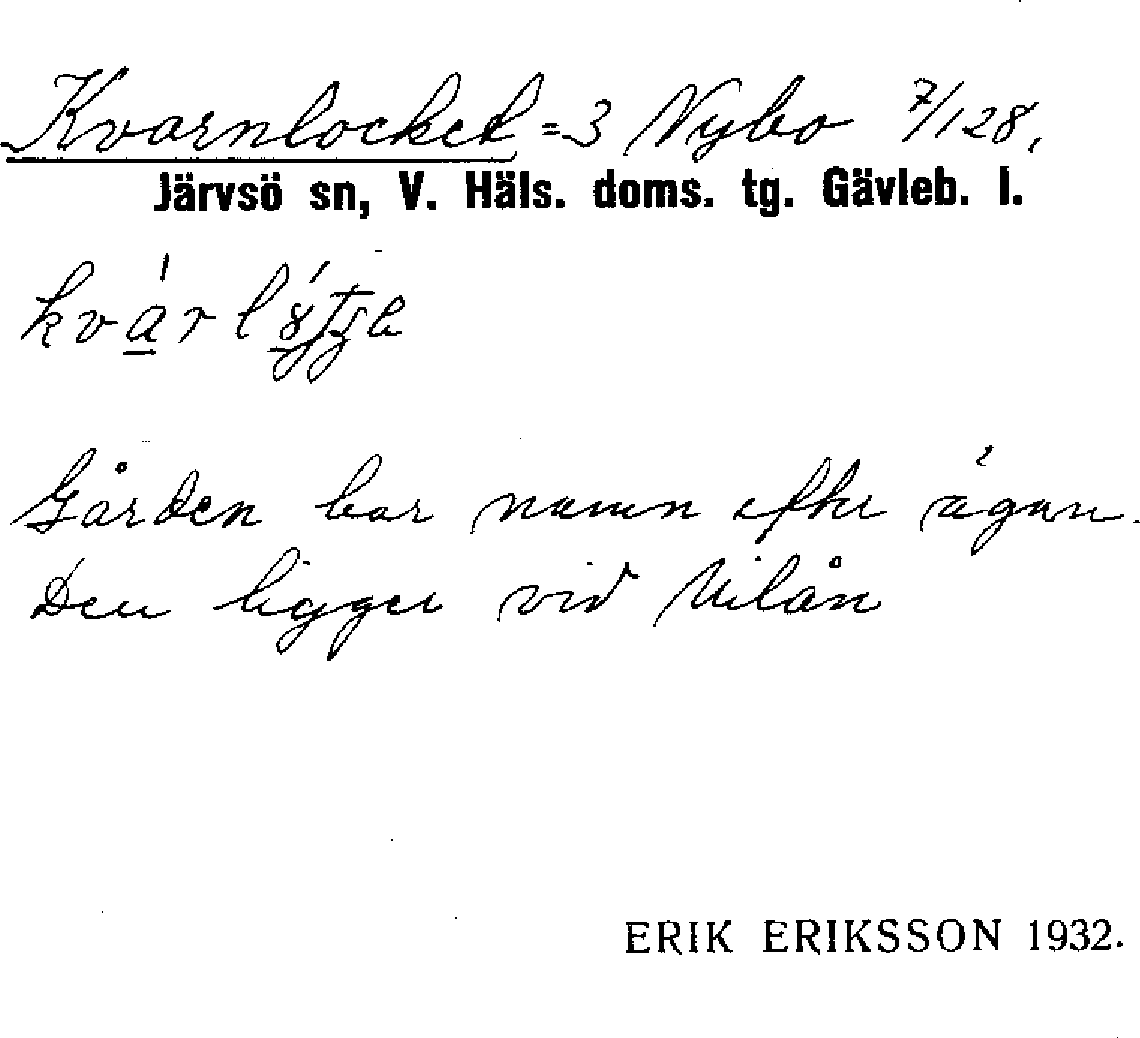 Kvarnlocket = 3 Nybo 7/128,
Järvsö sn, V. Häls. doms. tg. Gävleb. l.
Gården bar namn efter ägaren.
Den ligger vid Nilån
ERIK ERIKSSON 1932.